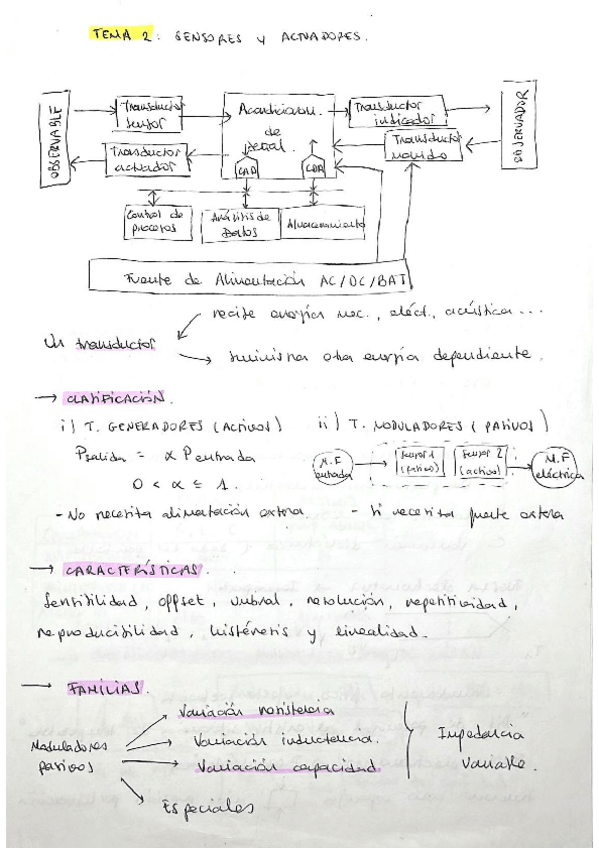 TEMA 2: SENSORES y ACTUADORES.
OBSERVABLE
Transductor sensor
Acondicion. de señal.
Transductor indicador
OBSERVADOR
Transductor actuador
Transductor
CAD
CDA
Control de procesos
Análisis de Datos
Almacenamiento
Fuente de Alimentación AC/DC/BAT
recibe energía mec., eléct., acústica...
Un transductor
suministra otra energía dependiente.
→ CLASIFICACIÓN.
i) T. GENERADORES (ACTIVOS)
ii) T. MODULADORES (PASIVOS)
Psalida = α Pentrada
0 < α ≤ 1.
M.F entrada
Sensor 1 (pasivo)
Sensor 2 (activo)
M.F eléctrica
- No necesita alimentación externa.
- Si necesita fuente externa
→ CARACTERÍSTICAS.
Sensibilidad, offset, umbral, resolución, repetitividad,
reproducibilidad, histéresis y linealidad.
→ FAMILIAS.
Moduladores pasivos
Variación resistencia
Variación inductancia.
Variación capacidad.
Especiales
Impedancia Variable.